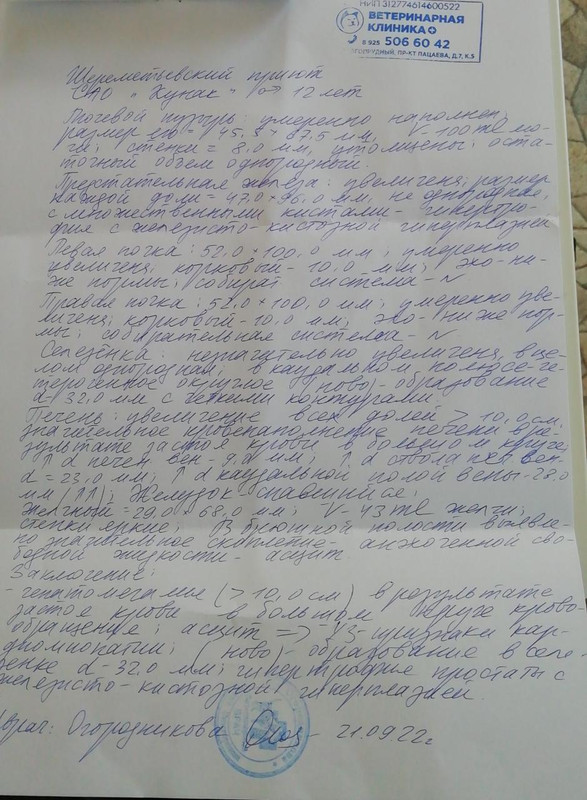 ИНН 312774614600522
ВЕТЕРИНАРНАЯ
КЛИНИКА
8 925 506 60 42
ПР-КТ ПАЦАЕВА, Д.7, К.5
Шереметьевский приют
САО "Хунак" ♂ 12 лет
Мочевой пузырь: умеренно наполнен,
размер его = 45.5 × 87.5 мм, V-100 ml мо-
чи; стенки = 8.0 мм, утолщены; оста-
точный объем однородный.
Предстательная железа: увеличена; размер
каждой доли = 47.0 × 96.0 мм, неоднородная,
с множественными кистами - гипертро-
фия с железисто-кистозной гиперплазией
Левая почка: 52.0 × 100.0 мм; умеренно
увеличена; корковый - 10.0 мм; эхо-ни-
же нормы; собират система - N
Правая почка: 52.0 × 100.0 мм; умеренно уве-
личена; корковый - 10.0 мм; эхо-ниже нор-
мы; собирательная система - N
Селезёнка: незначительно увеличена, в це-
лом однородная; в каудальном полюсе ге-
терогенное округлое (ново)-образование
d-32.0 мм с четкими контурами.
Печень: увеличение всех долей > 10.0 см;
значительное кровенаполнение печени в ре-
зультате застоя крови в большом круге;
↑↑ d печен вен - мм; ↑ d ствола вен
d = 23.0 мм; ↑ d каудальной полой вены - 28.0
мм (↑↑); Желудок спавшийся.
Желчный = 29.0 × 68.0 мм; V-43 ml желчи;
стенки яркие; В брюшной полости выявле-
но значительное скопление анэхогенной сво-
бодной жидкости - асцит
Заключение:
- гепатомегалия (> 10.0 см) в результате
застоя крови в большом круге крово-
обращение; асцит => УЗ-признаки кар-
диомиопатии; (ново)-образование в селе-
зенке d-32.0 мм; гипертрофия простаты с
железисто-кистозной гиперплазией.
Врач: Огородникова 21.09.22г.